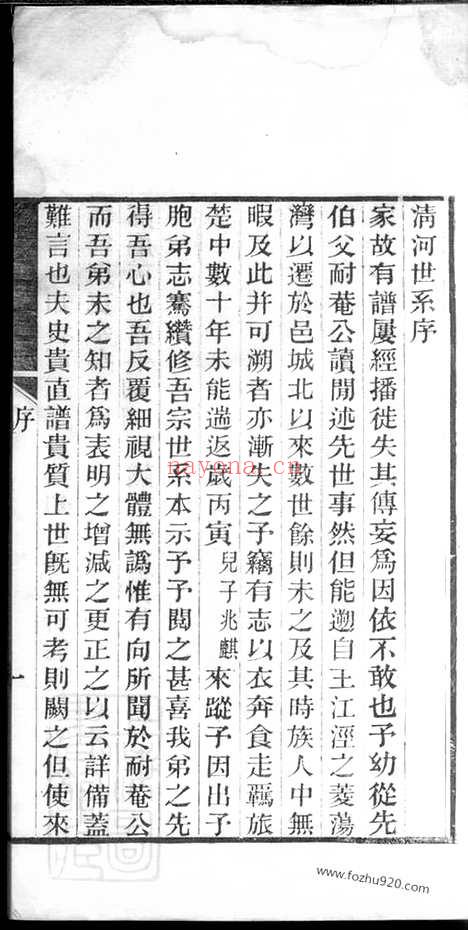 清河世系序
家故有譜屢經播徙失其傳妄爲因依不敢也予幼從先
伯父耐菴公讀閒述先世事然但能遡自王江涇之菱蕩
灣以遷於邑城北以來數世餘則未之及其時族人中無
暇及此并可溯者亦漸失之予竊有志以衣奔食走羈旅
楚中數十年未能遄返歲丙寅兒子兆麒來蹤予因出予
胞弟志騫纘修吾宗世系本示予予閱之甚喜我弟之先
得吾心也吾反覆細視大體無譌惟有向所聞於耐菴公
而吾弟未之知者爲表明之增減之更正之以云詳備蓋
難言也夫史貴直譜貴質上世旣無可考則闕之但使來
序
一
nayona.cn
www.fozhu920.com